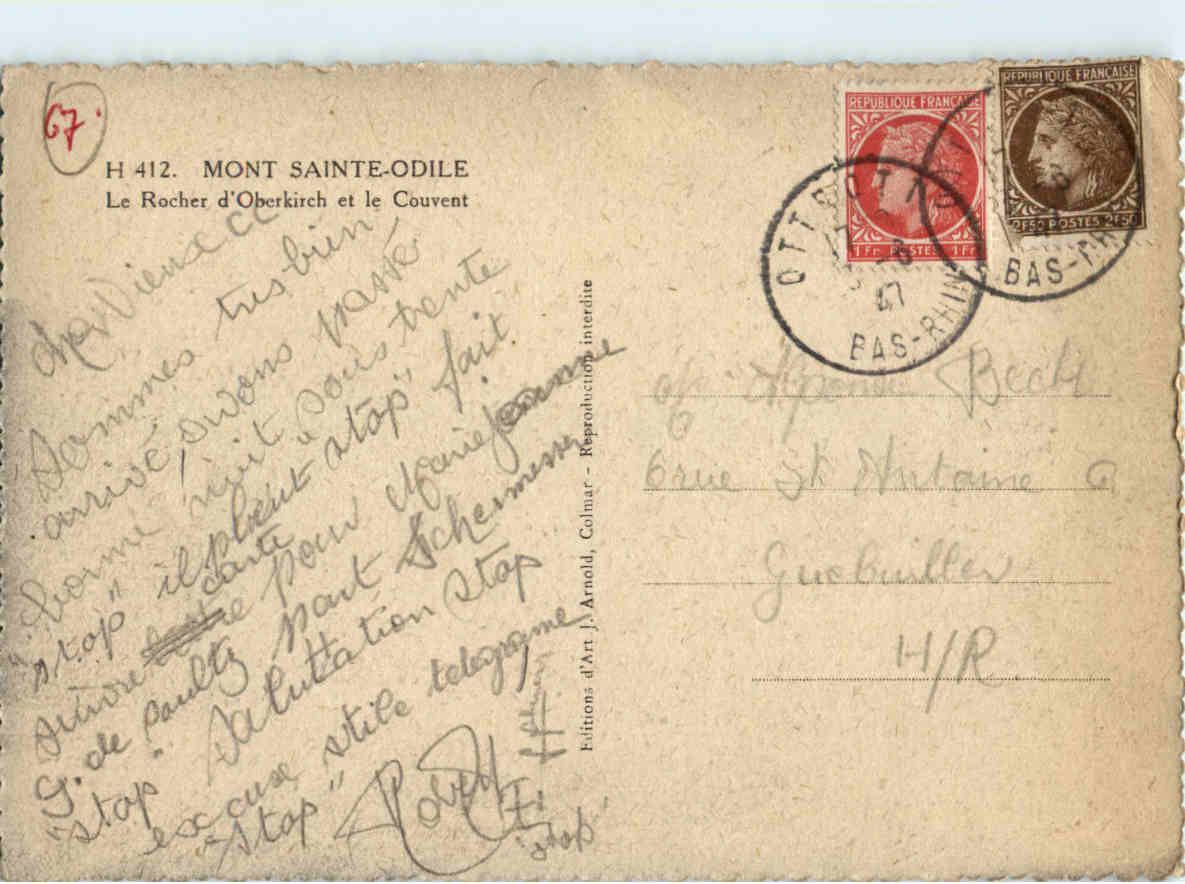 67
H 412. MONT SAINTE-ODILE
Le Rocher d'Oberkirch et le Couvent
Sommes tres bien
arrivé, avons passé
bonne nuit sous trente
"stop" il pleut "stop" fait
suivre carte pour Marie Jeanne
G. de Saultz part Schermesser
"stop" Saluttation stop
excuse stile telegrame
"stop" Robert
"stop"
Editions d'Art J. Arnold, Colmar - Reproduction interdite
REPUBLIQUE FRANÇAISE
1 Fr POSTES 1 Fr
REPUBLIQUE FRANÇAISE
2F50 POSTES 2F50
OTTROTT
47
BAS-RHIN
BAS-RHIN
Alponse
6 rue St Antoine 6
Guebwiller
H/R